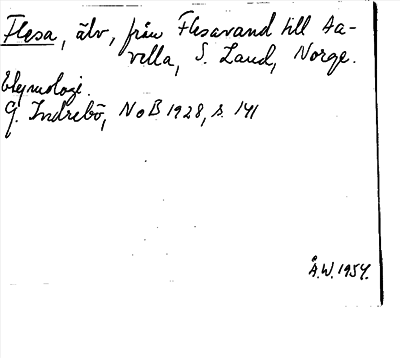 Flesa, älv, från Flesavand till Aa-
vella, S. Land, Norge.
Etymologi.
G. Indrebö, NoB 1928, s. 141
Å.W. 1954.